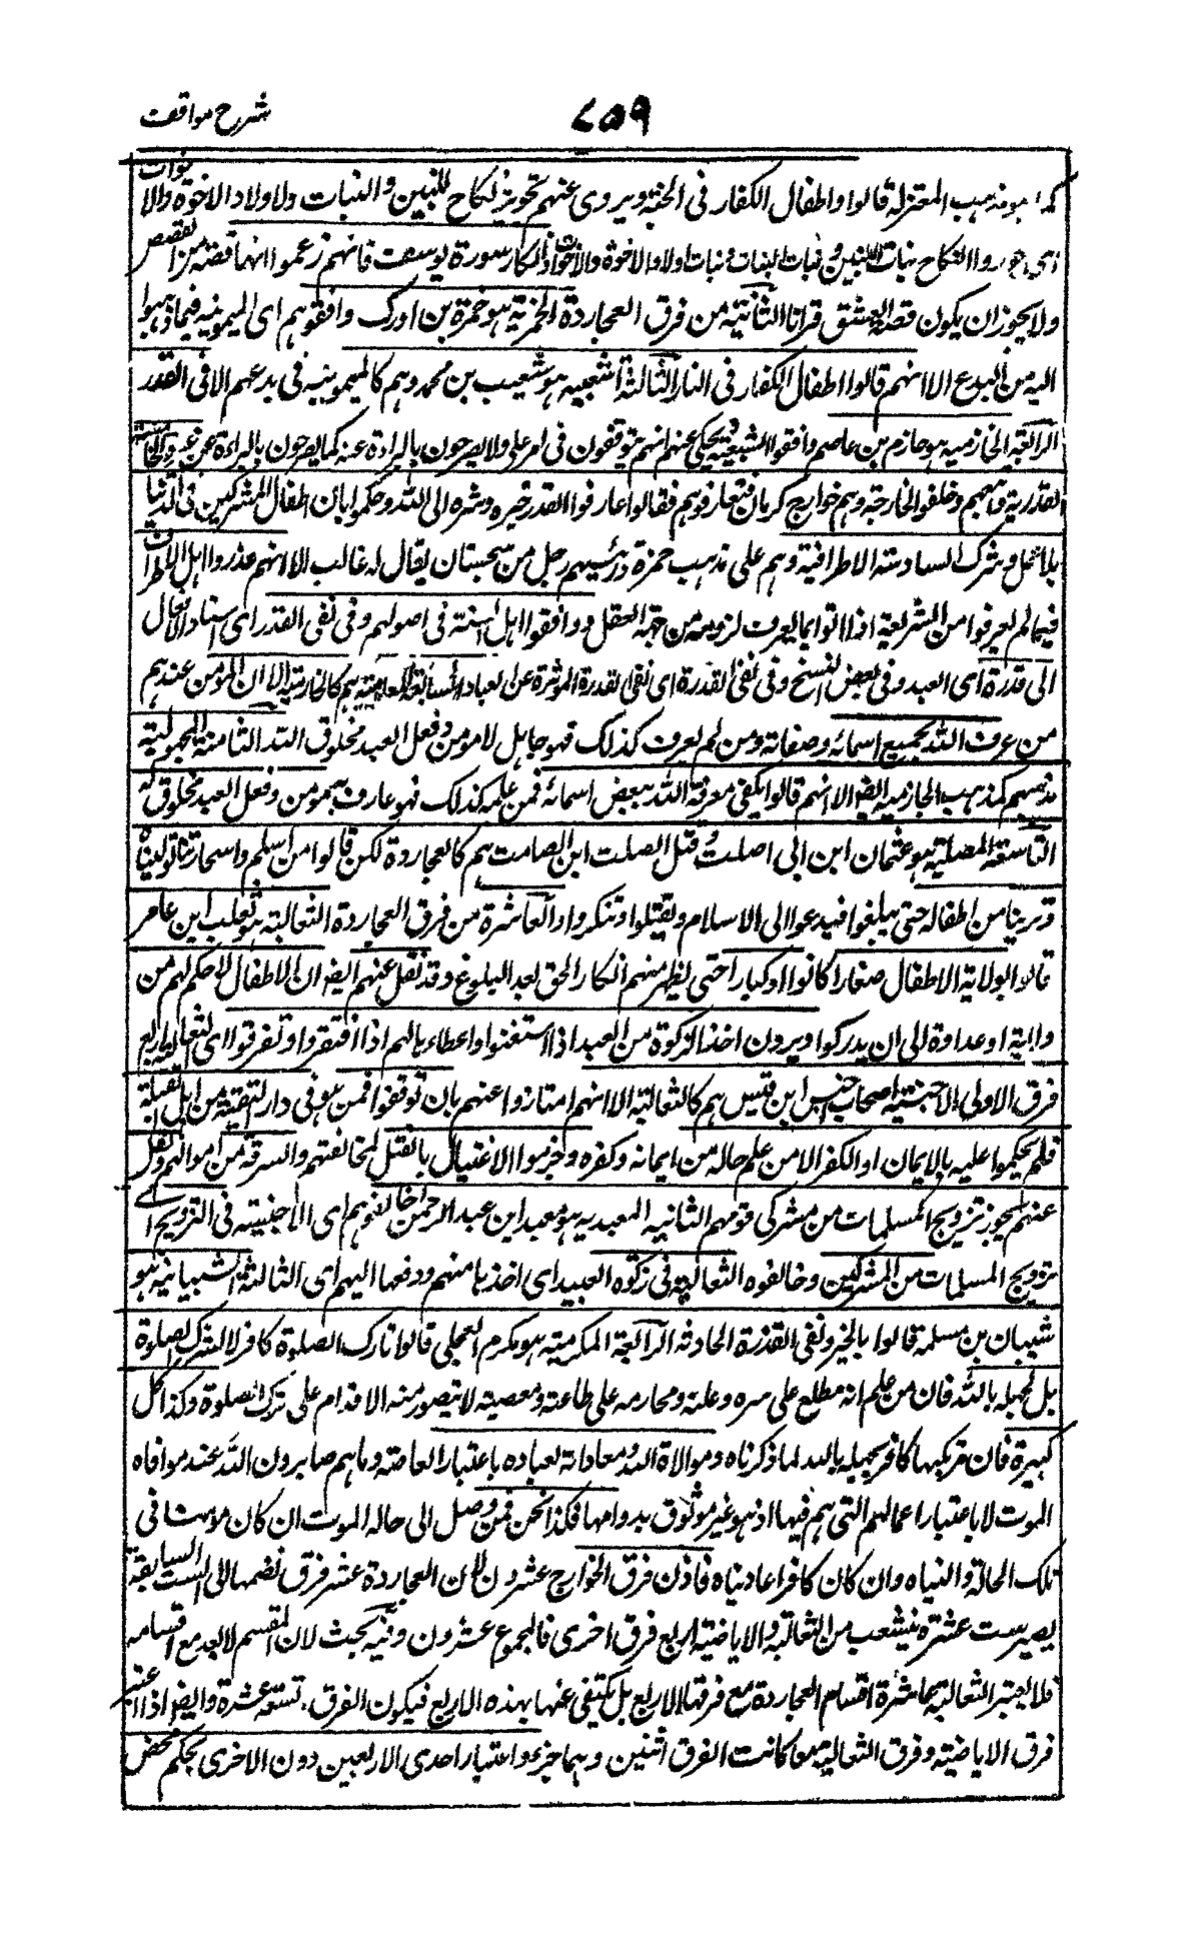 شرح مواقف
٧٥٩
كما هو مذهب المعتزلة قالوا واطفال الكفار فى الجنة ويروى عنهم تجويز نكاح للبنين والبنات ولاولاد الاخوة والاخوات
اى جوزوا النكاح بنات البنين وبنات البنات وبنات اولاد الاخوة والاخوات وانكار سورة يوسف فانهم زعموا انها قصة من القصص
ولا يجوز ان يكون قصة العشق قرانا الثانية من فرق العجاردة الحمزية هو حمزة بن ادرك وافقوهم اى الميمونية فيما ذهبوا
اليه من البدع الا انهم قالوا اطفال الكفار فى النار الثالثة الشعيبية هو شعيب بن محمد وهم كالميمونية فى بدعهم الا فى القدر
الرابعة الخازمية هو حازم بن عاصم وافقوا الشعيبية ويحكى عنهم انهم يتوقفون فى امر على ولا يصرحون بالبراءة عنه كما يصرحون بالبراءة عن غيره الخامسة
وخلف الخارجى وهم خوارج كرمان فقالوا القدر خيره وشره الى الله وحكموا بان اطفال المشركين فى النار
بلا عمل وشرك السادسة الاطرافية وهم على مذهب حمزة ورئيسهم رجل من سجستان يقال له غالب الا انهم عذروا اهل الاطراف
فيما لم يعرفوا من الشريعة اذا اتوا بما يعرف لزومه من جهة العقل ووافقوا اهل السنة فى اصولهم وفى نفى القدر اى اسناد الافعال
الى قدرة اى العبد وفى بعض النسخ وفى نفى القدرة اى نفى القدرة الموثرة عن العباد السابعة المعلومية هم كالخازمية الا ان المومن عندهم
من عرف الله بجميع اسمائه وصفاته ومن لم يعرف كذلك فهو جاهل لا مومن وفعل العبد مخلوق الله الثامنة المجهولية
مذهبهم كمذهب الخازمية ايضا الا انهم قالوا يكفى معرفة الله ببعض اسمائه فمن علمه كذلك فهو عارف به مومن وفعل العبد مخلوق له
التاسعة الصلتية هو عثمان ابن ابى الصلت وقيل الصلت ابن الصامت هم كالعجاردة لكن قالوا من اسلم واستجار بنا توليناه
وتبرينا من اطفاله حتى يبلغوا فيدعوا الى الاسلام ويقبلوا او تنكروا والعاشرة من فرق العجاردة الثعالبة هو ثعلب ابن عامر
قالوا بولاية الاطفال صغارا كانوا او كبارا حتى يظهر منهم انكار الحق بعد البلوغ وقد نقل عنهم ايضا ان الاطفال لا حكم لهم من
ولاية او عداوة الى ان يدركوا ويرون اخذ الزكوة من العبد اذا استغنوا واعطاءها لهم اذا افتقروا وتفرقوا اى الثعالبة اربع
فرق الاولى الاخنسية اصحاب اخنس ابن قيس هم كالثعالبة الا انهم امتازوا عنهم بان توقفوا فمن هو فى دار التقية من اهل القبلة
فلم يحكموا عليه بالايمان او الكفر الا من علم حاله من ايمانه وكفره وحرموا الاغتيال بالقتل لمخالفتهم والسرقة من اموالهم ونقل
عنهم تجويز تزويج المسلمات من مشركى قومهم الثانية المعبدية هو معبد ابن عبد الرحمن خالفوهم اى الاخنسية فى التزويج اى
تزويج المسلمات من المشركين وخالفوه الثعالبة فى زكوة العبيد اى اخذها منهم ودفعها اليهم اى الثالثة الشيبانية هو
شيبان بن سلمة قالوا بالجبر ونفى القدرة الحادثة الرابعة المكرمية هو مكرم العجلى قالوا تارك الصلوة كافر لا لترك الصلوة
بل لجهله بالله فان من علم انه مطلع على سره وعلنه ومجازيه على طاعته ومعصيته لا يتصور منه الاقدام على ترك الصلوة وكذا كل
كبيرة فان مرتكبها كافر بجهله بالله لما ذكرناه وموالاة الله ومعاداته لعباده باعتبار العاقبة وما هم صايرون الله عند موافاه
الموت لا باعتبار اعمالهم التى هم فيها اذ هو غير موثوق بدوامها فكذا نحن فمن وصل الى حالة الموت ان كان مومنا فى
تلك الحالة واليناه وان كان كافرا عاديناه فاذن فرق الخوارج عشرون لان العجاردة عشر فرق نضمها الى الست السابقة
يصير ست عشرة يتشعب من الثعالبة والاباضية اربع فرق اخرى فالمجموع عشرون وفيه بحث لان المقسم لا يعد مع اقسامه
فلا يعتبر الثعالبة عاشرة اقسام العجاردة مع فرقها الاربع بل يكتفى عنها بهذه الاربع فيكون الفرق تسعة عشرة وايضا اذا اعتبر
فرق الاباضية وفرق الثعالبة معا كانت الفرق اثنين وعشرين واعتبار احدى الاربعين دون الاخرى تحكم محض